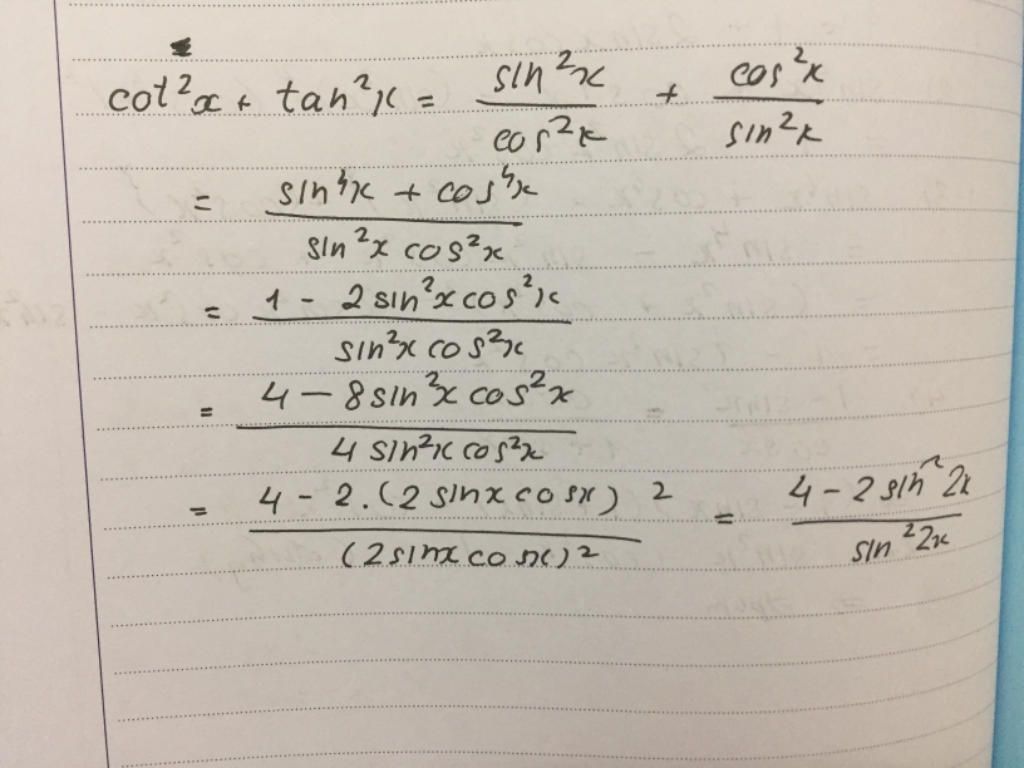 cot²x + tan²x = sin²x / cos²x + cos²x / sin²x
= (sin⁴x + cos⁴x) / (sin²x cos²x)
= (1 - 2 sin²x cos²x) / (sin²x cos²x)
= (4 - 8 sin²x cos²x) / (4 sin²x cos²x)
= (4 - 2.(2 sinx cosx)²) / ((2 sinx cosx)²) = (4 - 2 sin²2x) / (sin²2x)